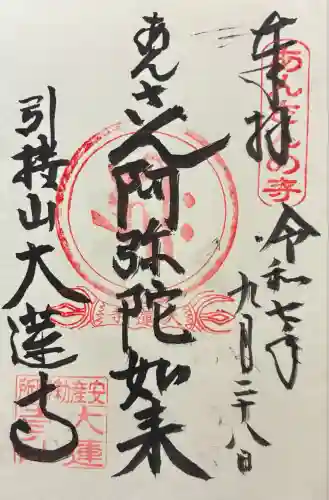 奉拝
あんざんの寺
令和七年
九月二十八日
あんざん
阿弥陀如来
大蓮寺
引接山大蓮寺
安産祈
大蓮